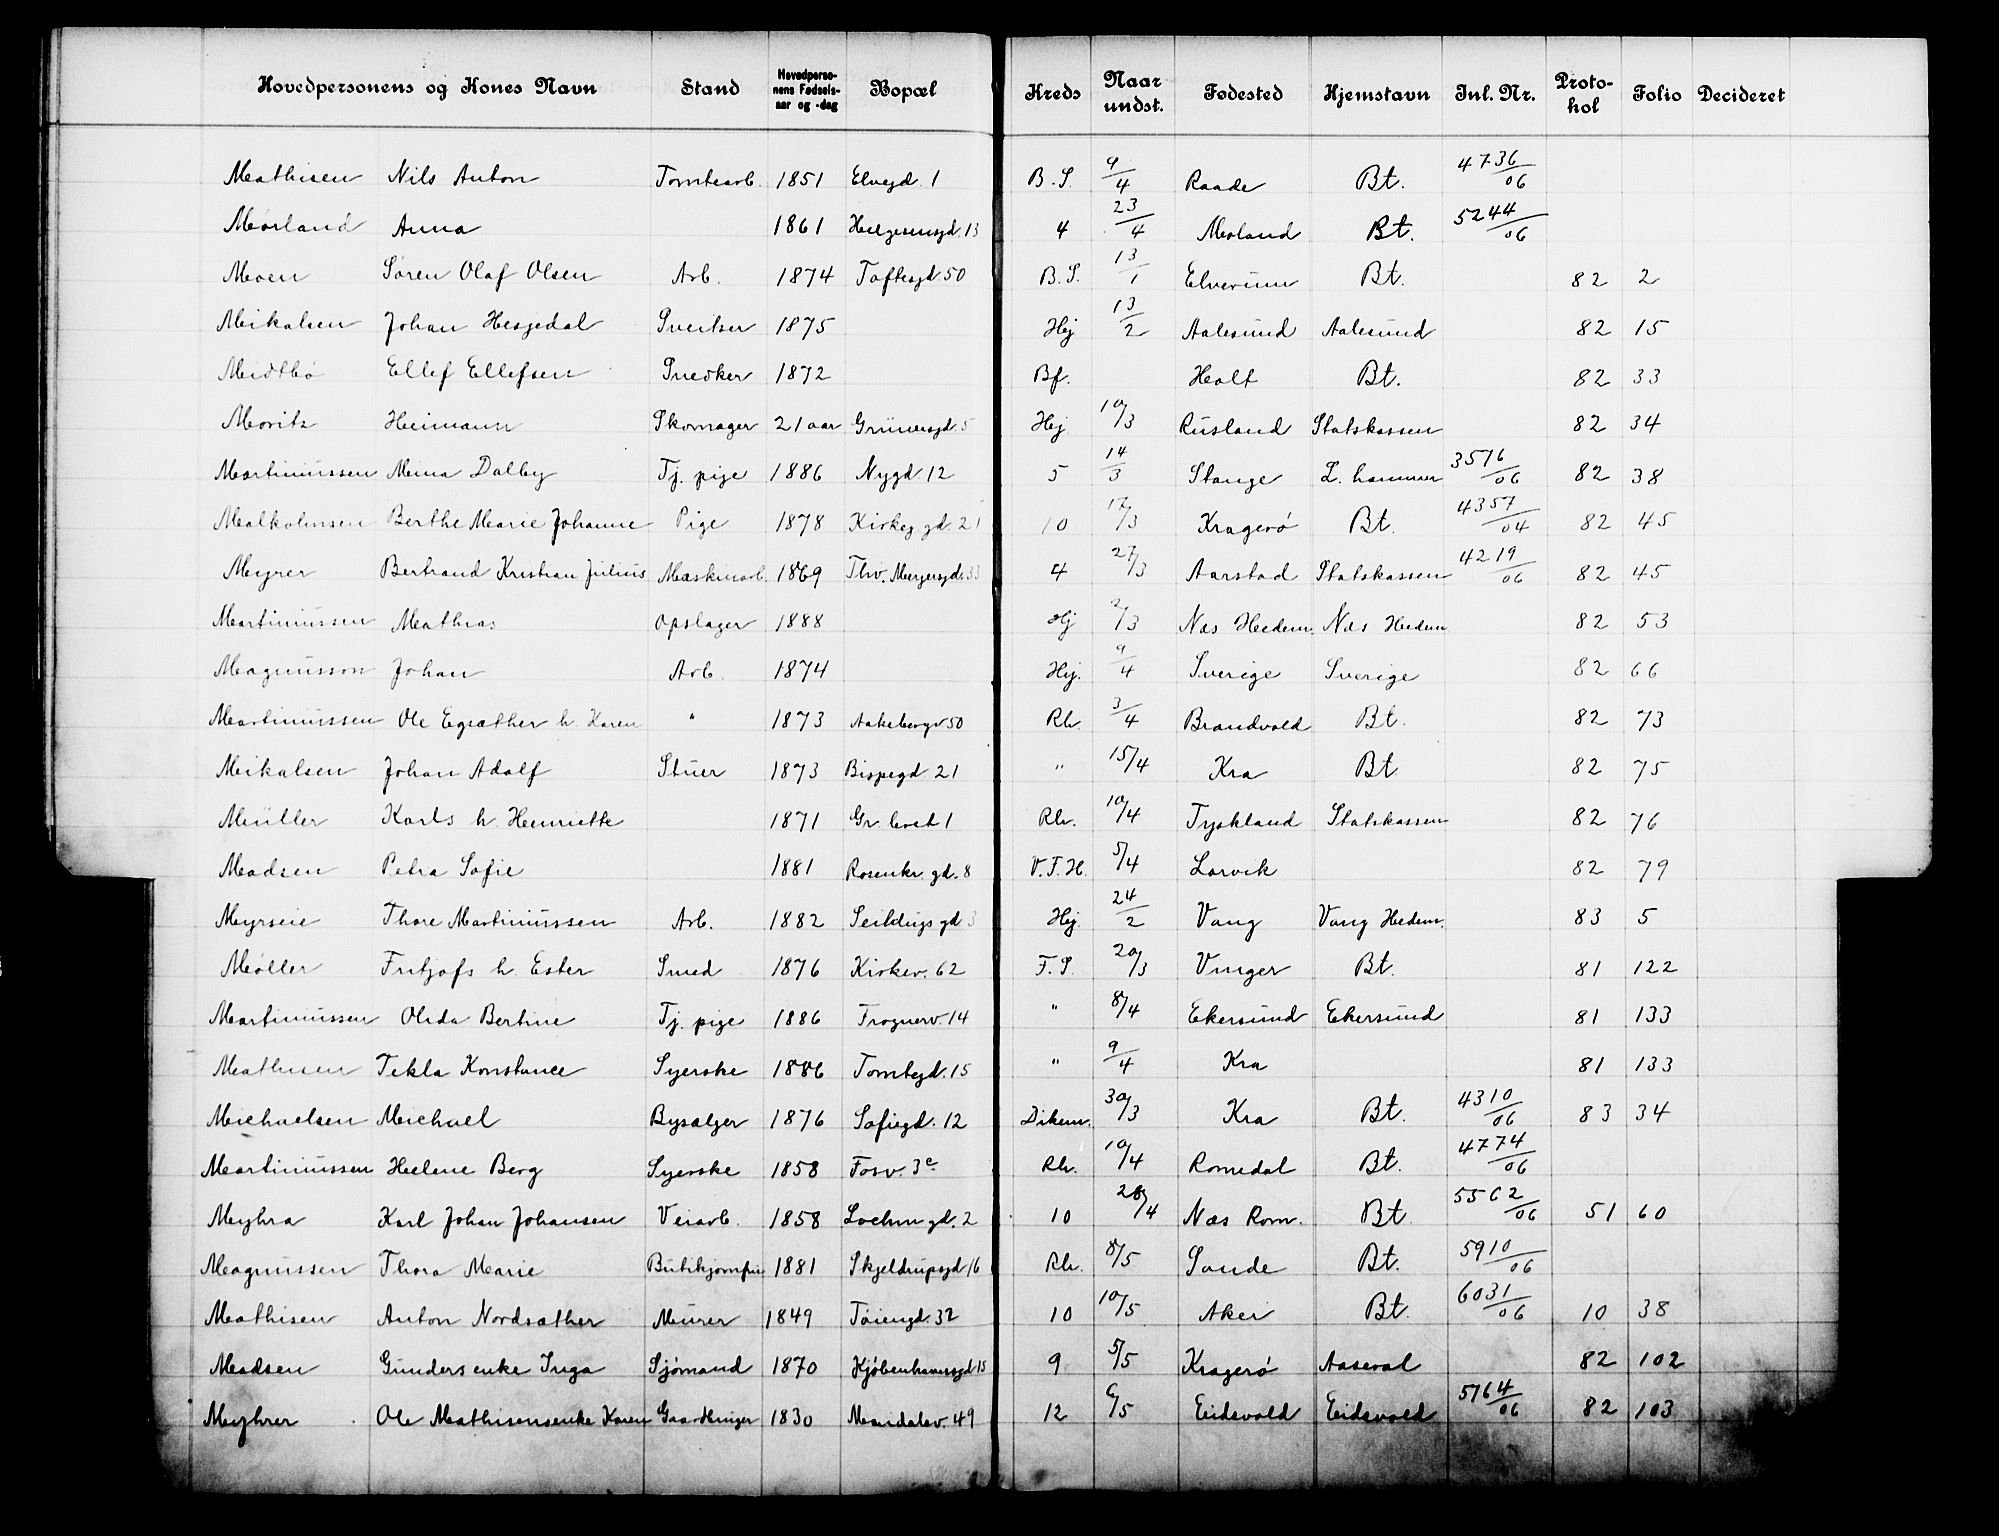 Hovedpersonens og Kones Navn Stand Hovedpersonens Fødselsaar og -dag Bopæl Kreds Naar undst. Fødested Hjemstavn Inl. Nr. Protokol Folio Decideret
Mathisen Nils Anton Tomtearb. 1851 Elvegd. 1 B.S. 9/4 Raade Bt. 4736/06
Mørland Anna 1861 Helgesensgd. 13 4 23/4 Moland Bt. 5244/06
Moen Søren Olaf Olsen Arb. 1874 Toftesgd. 50 B.S. 13/1 Elverum Bt. 82 2
Mikalsen Johan Hesgedal Sveitser 1875 Hej 13/2 Aalesund Aalesund 82 15
Midtbø Ellef Ellefsen Snedker 1872 Bf. Holt Bt. 82 33
Moritz Heimann Skomager 21 aar Grünersgd. 5 Hej 10/3 Rusland Statskassen 82 34
Martinussen Mina Dalby Tj. pige 1886 Nygd. 12 5 14/3 Stange L. hammer 3576/06 82 38
Malkolmsen Berthe Marie Johanne Pige 1878 Kirkeg gd. 21 10 17/3 Kragerø Bt. 4357/04 82 45
Myrer Bertrand Kristian Julius Maskinarb. 1869 Thv. Meyersgd. 33 4 27/3 Aarstad Statskassen 4219/06 82 45
Martinussen Mathias Opslager 1888 Hj 2/3 Næs Hedem. Næs Hedem 82 53
Magnusson Johan Arb. 1874 Hej. 9/4 Sverige Sverige 82 66
Martinussen Ole Egsæther h. Karen " 1873 Aakebergv 50 Rh. 3/4 Brandvold Bt. 82 73
Mikalsen Johan Adolf Stuer 1873 Bispegd. 21 " 15/4 Kra Bt. 82 75
Müller Karls h. Henriette 1871 Gr. levet 1 Rh. 10/4 Tyskland Statskassen 82 76
Madsen Petra Sofie 1881 Rosenkr. gd. 8 V.F.H. 5/4 Larvik 82 79
Myrseie Thore Martinussen Arb. 1882 Seildugsgd 3 Hej. 24/2 Vang Vang Hedem. 83 5
Møller Fritjofs h. Ester Smed 1876 Kirkev. 62 F.S. 20/3 Vinger Bt. 81 122
Martinussen Olida Bertine Tj. pige 1886 Frognerv. 14 " 8/4 Ekersund Ekersund 81 133
Mathisen Tekla Konstance Syerske 1886 Tomtegd. 15 " 9/4 Kra 81 133
Michaelsen Michael Bysælger 1876 Sofiegd. 12 Dikem. 30/3 Kra Bt. 4310/06 83 34
Martinussen Helene Berg Syerske 1858 Fosv. 3c Rh. 10/4 Romedal Bt. 4774/06
Myhra Karl Johan Johansen Veiarb. 1858 Lochm gd. 2 10 28/4 Næs Rom. Bt. 5562/06 51 60
Magnussen Thora Marie Butikjomfru 1881 Skjeldrupsgd 16 Rh. 8/5 Sande Bt. 5910/06
Mathisen Anton Nordsæther Murer 1849 Tøiengd. 32 10 10/5 Aker Bt. 6031/06 10 38
Madsen Gunders enke Inga Sjømand 1870 Kjøbenhavnsgd 15 9 5/5 Kragerø Aaseral 82 102
Myhrer Ole Mathisensenke Karen Gaardbruger 1830 Maridalsv. 49 12 6/5 Eidsvold Eidsvold 5764/06 82 103